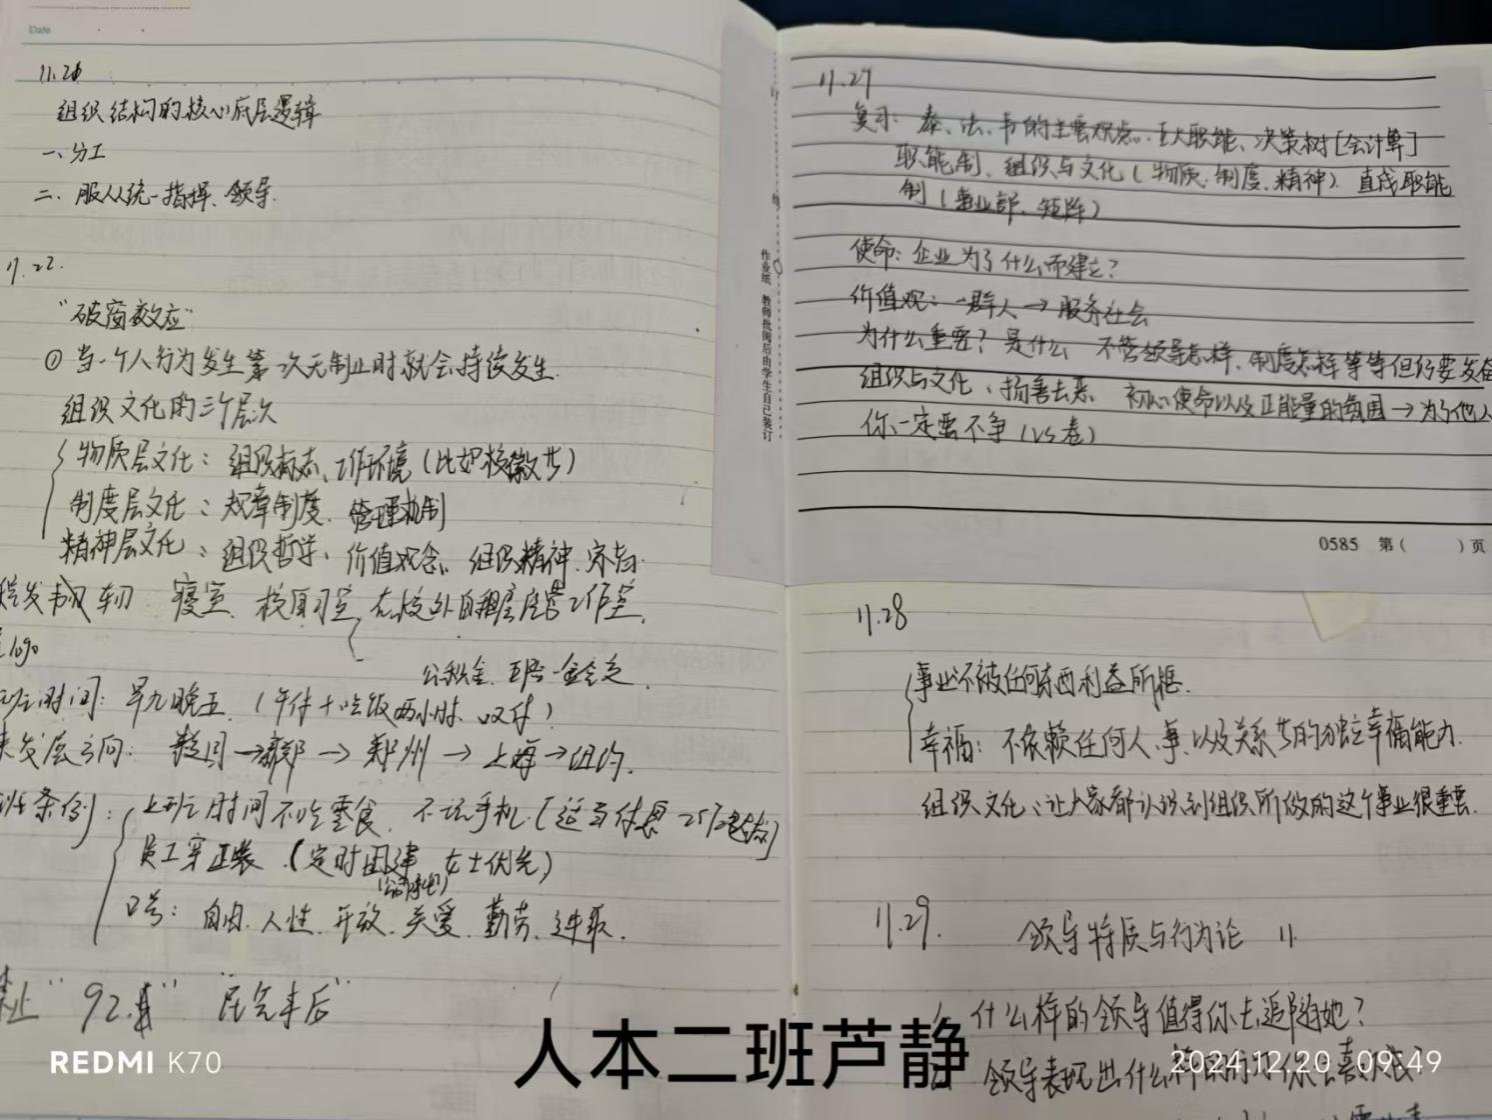 Date
11.21
组织结构的核心底层逻辑
一、分工
二、服从统一指挥、领导.
11.22.
"破窗效应"
① 当一个人行为发生第一次无制止时就会持续发生.
组织文化的三个层次
物质层文化：组织标志、工作环境（比如校徽等）
制度层文化：规章制度、管理机制
精神层文化：组织哲学、价值观念、组织精神、宗旨.
寝室、校自习室、在校外自租房
logo
公积金、五险一金
班时间：早九晚五（午休+吃饭两小时、双休）
发展方向： → → 郑州 → 上海 → 纽约.
班条例：上班时间不吃零食、不玩手机
员工穿正装（定时团建 女士优先）
口号：自由、人性、开放、关爱、勤劳、进取.
11.27
复习：泰、法、韦的主要观点、五大职能、决策树[会计算]
职能制、组织与文化（物质、制度、精神）直线职能
制（事业部、矩阵）
使命：企业为了什么而建立？
价值观：一群人→服务社会
为什么重要？是什么 不管领导怎样、制度怎样等等但仍要
组织与文化、扬善去恶 初心使命以及正能量的氛围→为了他人
你一定要不争（VS卷）
作业纸 教师批阅后由学生自己装订
0585 第( )页
11.28
事业不被任何东西利益所
幸福：不依赖任何人、事、以及关系等的独立幸福能力.
组织文化、让大家都认识到组织所做的这个事业很重要.
11.29. 领导特质与行为论 11
什么样的领导值得你去追随她？
领导表现出什么样的行为你会喜欢
REDMI K70
人本二班芦静
2024.12.20 09:49